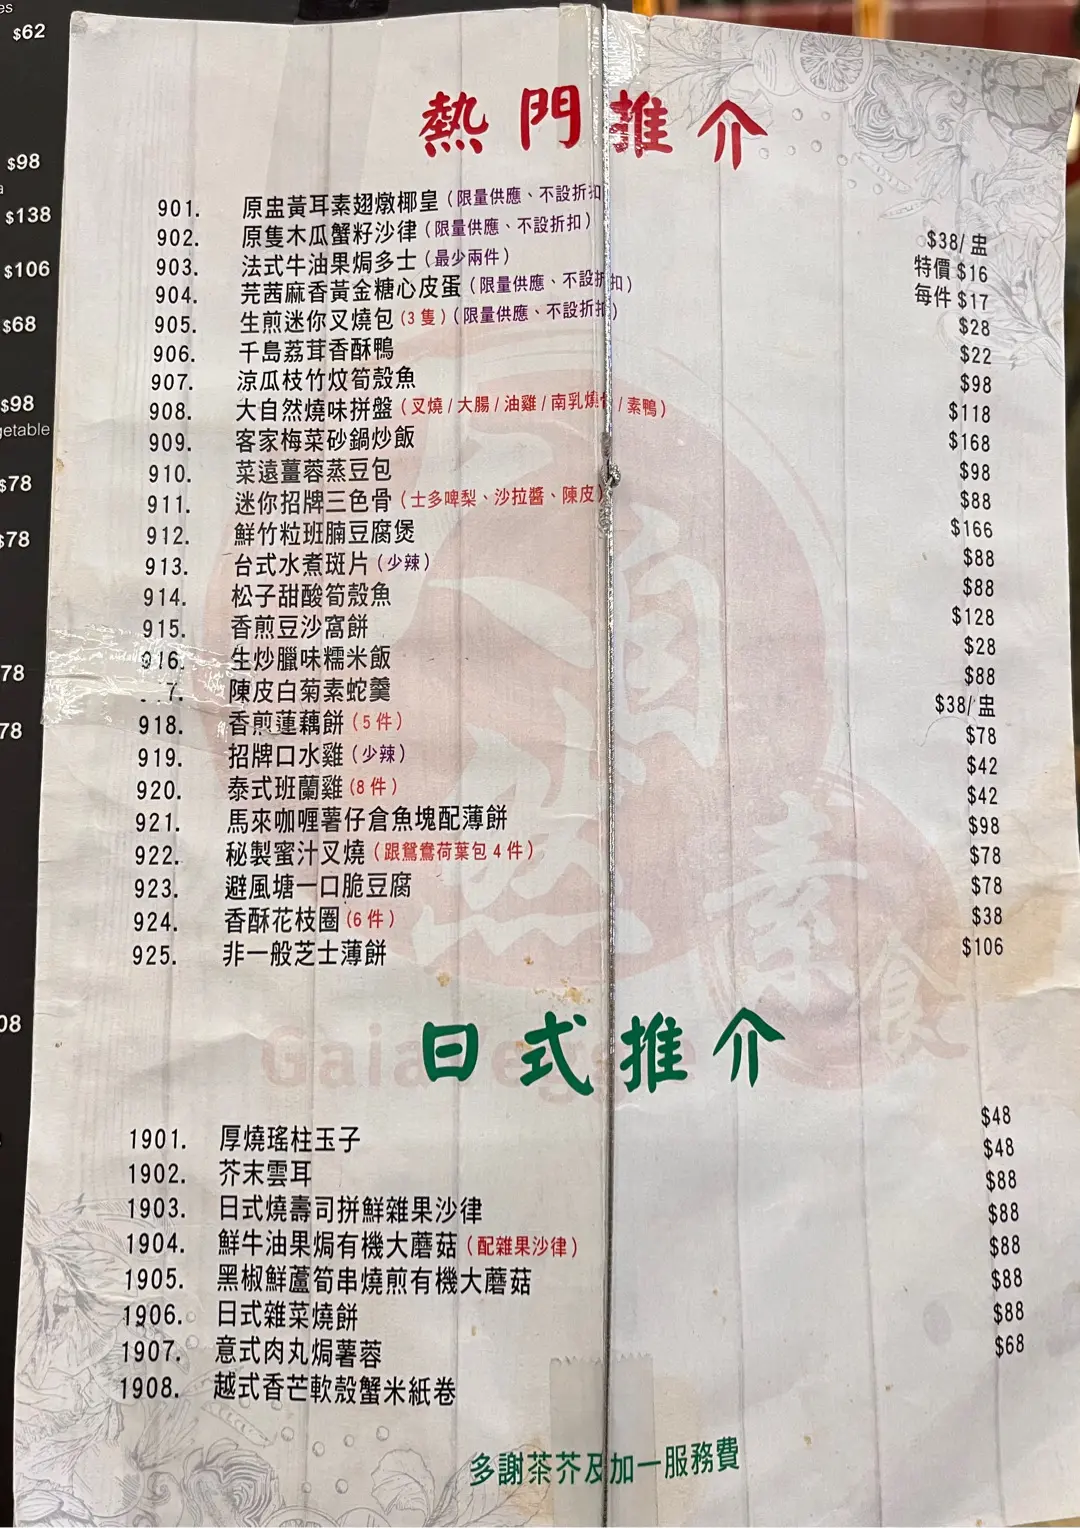 $62
$98
$138
$106
$68
$98
getable
$78
$78
78
78
08
熱門推介
901. 原盅黃耳素翅燉椰皇(限量供應、不設折扣 $38/盅
902. 原隻木瓜蟹籽沙律(限量供應、不設折扣) 特價 $16
903. 法式牛油果焗多士(最少兩件) 每件 $17
904. 芫茜麻香黃金糖心皮蛋(限量供應、不設折扣) $28
905. 生煎迷你叉燒包(3隻)(限量供應、不設折扣) $22
906. 千島荔茸香酥鴨 $98
907. 涼瓜枝竹炆筍殼魚 $118
908. 大自然燒味拼盤(叉燒/大腸/油雞/南乳燒骨/素鴨) $168
909. 客家梅菜砂鍋炒飯 $98
910. 菜遠薑蓉蒸豆包 $88
911. 迷你招牌三色骨(士多啤梨、沙拉醬、陳皮) $166
912. 鮮竹粒班腩豆腐煲 $88
913. 台式水煮斑片(少辣) $88
914. 松子甜酸筍殼魚 $128
915. 香煎豆沙窩餅 $28
916. 生炒臘味糯米飯 $88
7. 陳皮白菊素蛇羹 $38/盅
918. 香煎蓮藕餅(5件) $78
919. 招牌口水雞(少辣) $42
920. 泰式班蘭雞(8件) $42
921. 馬來咖喱薯仔倉魚塊配薄餅 $98
922. 秘製蜜汁叉燒(跟鴛鴦荷葉包4件) $78
923. 避風塘一口脆豆腐 $78
924. 香酥花枝圈(6件) $38
925. 非一般芝士薄餅 $106
自然素食
Gaia Veggie
日式推介
1901. 厚燒瑤柱玉子 $48
1902. 芥末雲耳 $48
1903. 日式燒壽司拼鮮雜果沙律 $88
1904. 鮮牛油果焗有機大蘑菇(配雜果沙律) $88
1905. 黑椒鮮蘆筍串燒煎有機大蘑菇 $88
1906. 日式雜菜燒餅 $88
1907. 意式肉丸焗薯蓉 $88
1908. 越式香芒軟殼蟹米紙卷 $68
多謝茶芥及加一服務費